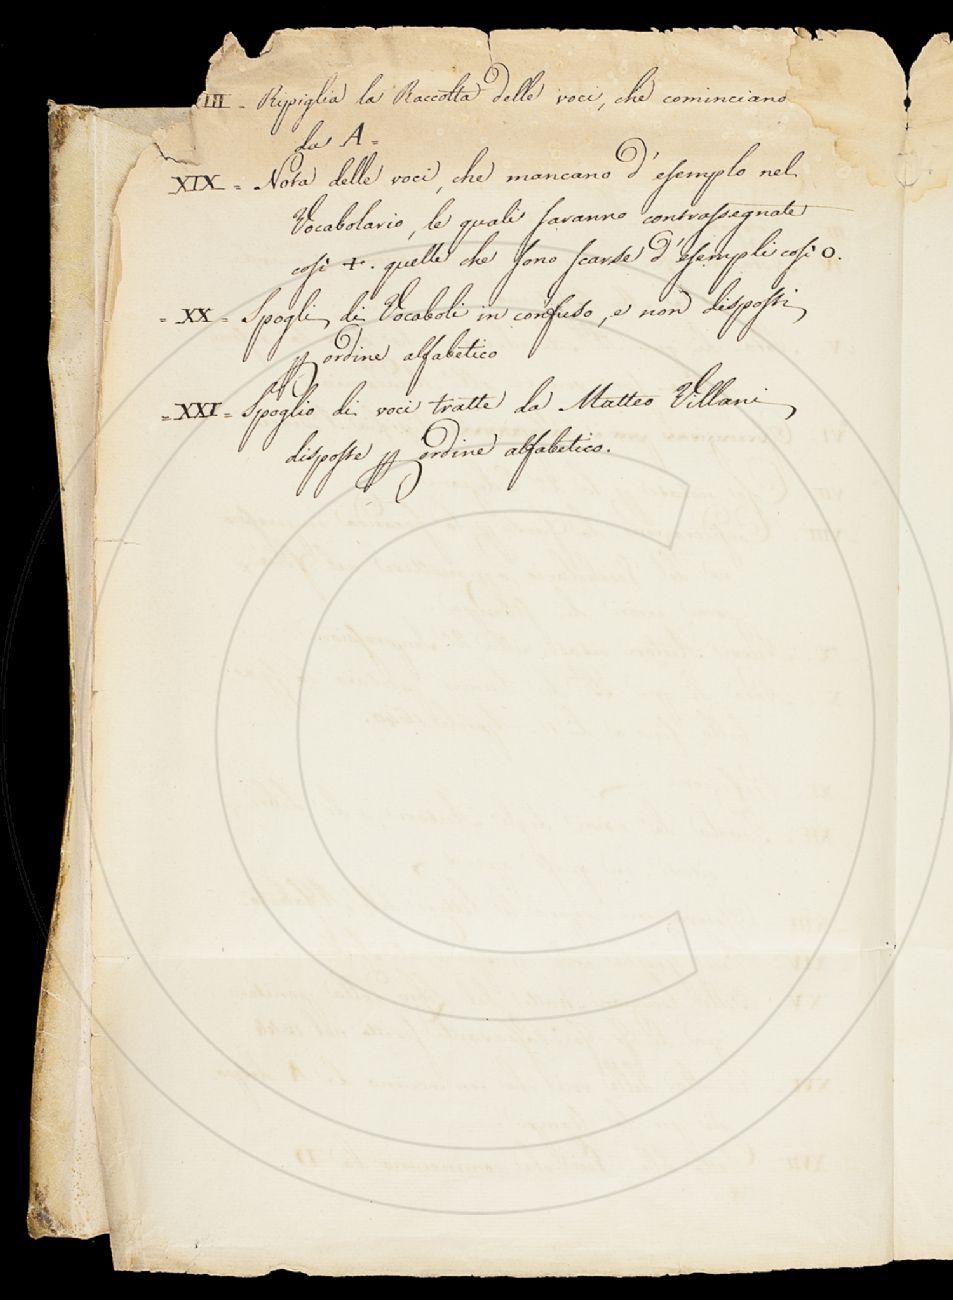 III = Ripiglia la Raccolta delle voci, che cominciano
da A =
XIX = Nota delle voci, che mancano d'esemplo nel
Vocabolario, le quali saranno contrassegnate
così +. quelle che sono scarse d'esempli così o.
= XX = Spogli di Vocaboli in confuso, e non disposti
p ordine alfabetico
= XXI = Spoglio di voci tratte da Matteo Villani
disposte p ordine alfabetico.